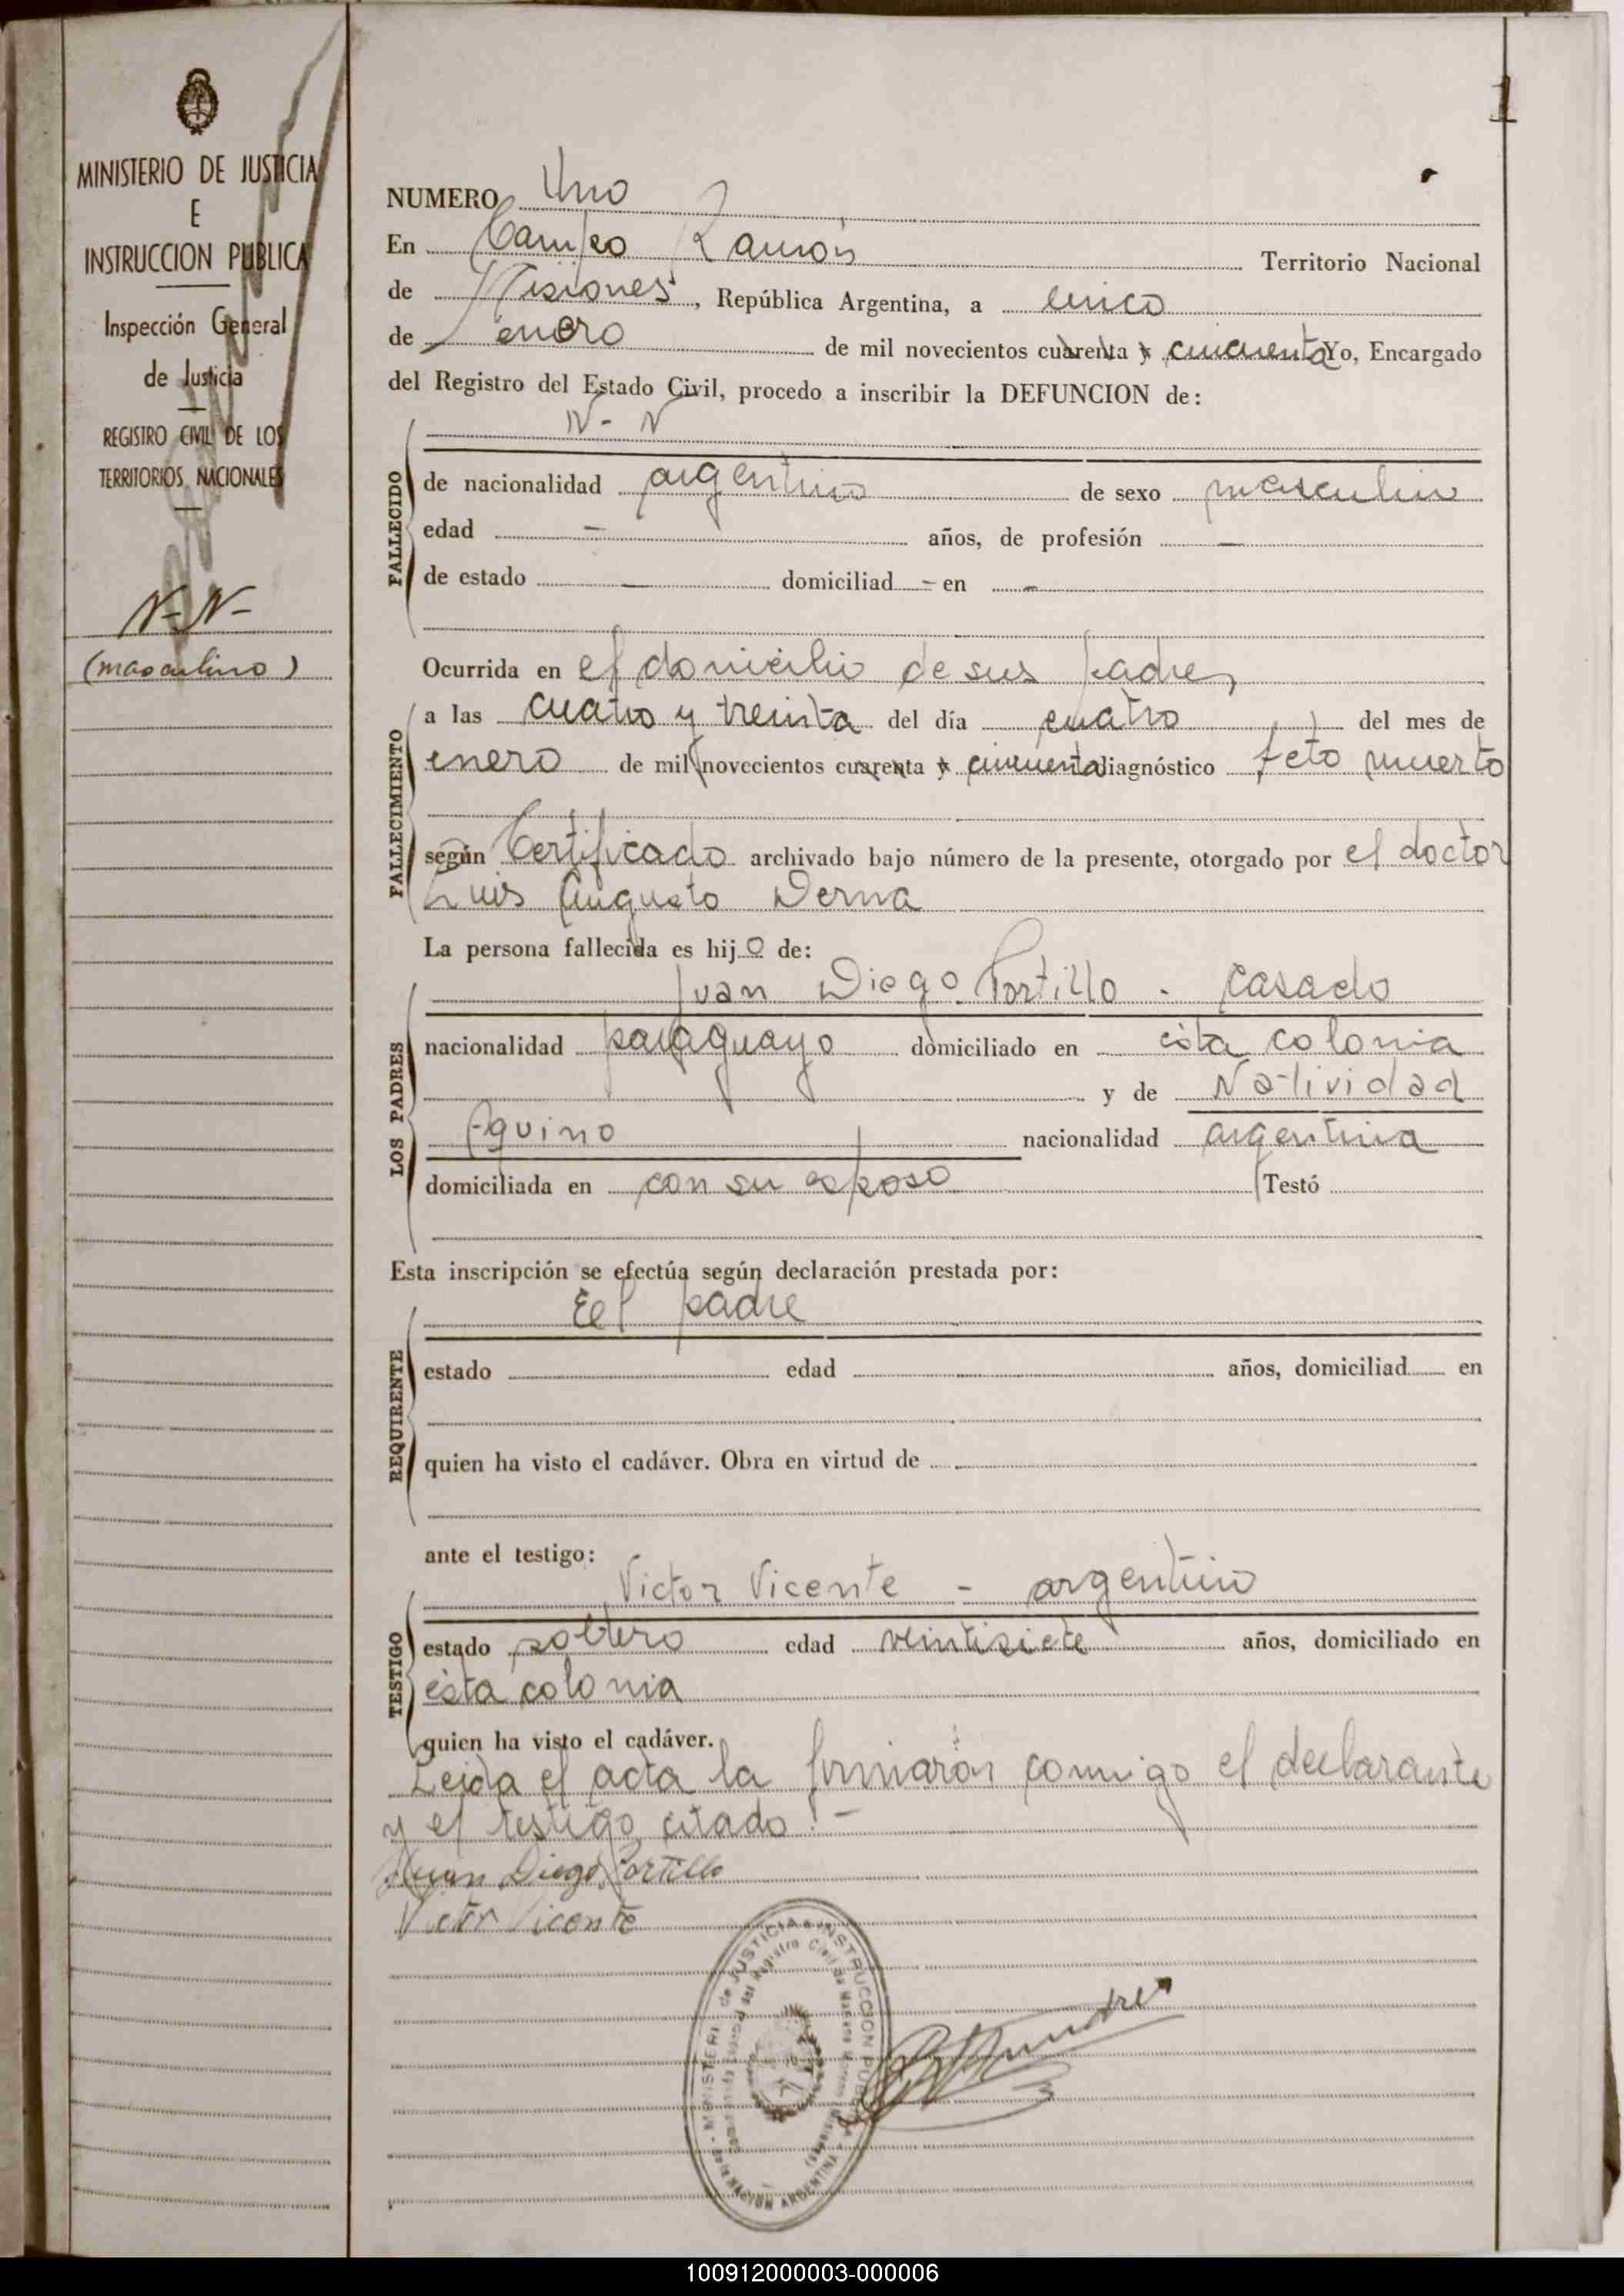 1
MINISTERIO DE JUSTICIA
E
INSTRUCCION PUBLICA
Inspección General
de Justicia
REGISTRO CIVIL DE LOS
TERRITORIOS NACIONALES
N-N-
(masculino)
NUMERO Uno
En Campo Ramón Territorio Nacional
de Misiones, República Argentina, a cinco
de enero de mil novecientos cuarenta y cincuenta Yo, Encargado
del Registro del Estado Civil, procedo a inscribir la DEFUNCION de:
N - N
FALLECIDO
de nacionalidad argentino de sexo masculino
edad - años, de profesión -
de estado - domiciliad - en -
Ocurrida en el domicilio de sus padres
FALLECIMIENTO
a las cuatro y treinta del día cuatro del mes de
enero de mil novecientos cuarenta y cincuenta diagnóstico feto muerto
según Certificado archivado bajo número de la presente, otorgado por el doctor
Luis Augusto Derna
La persona fallecida es hijo de:
LOS PADRES
Juan Diego Portillo - casado
nacionalidad paraguayo domiciliado en ésta colonia
y de Natividad
Aquino nacionalidad argentina
domiciliada en con su esposo Testó
Esta inscripción se efectúa según declaración prestada por:
REQUIRENTE
El padre
estado edad años, domiciliad en
quien ha visto el cadáver. Obra en virtud de
ante el testigo:
TESTIGO
Victor Vicente - argentino
estado soltero edad veintisiete años, domiciliado en
ésta colonia
quien ha visto el cadáver.
Leida el acta la firmarón conmigo el declarante
y el testigo citado.-
Juan Diego Portillo
Victor Vicente
MINISTERIO de JUSTICIA e INSTRUCCION PUBLICA
de la NACION ARGENTINA
100912000003-000006